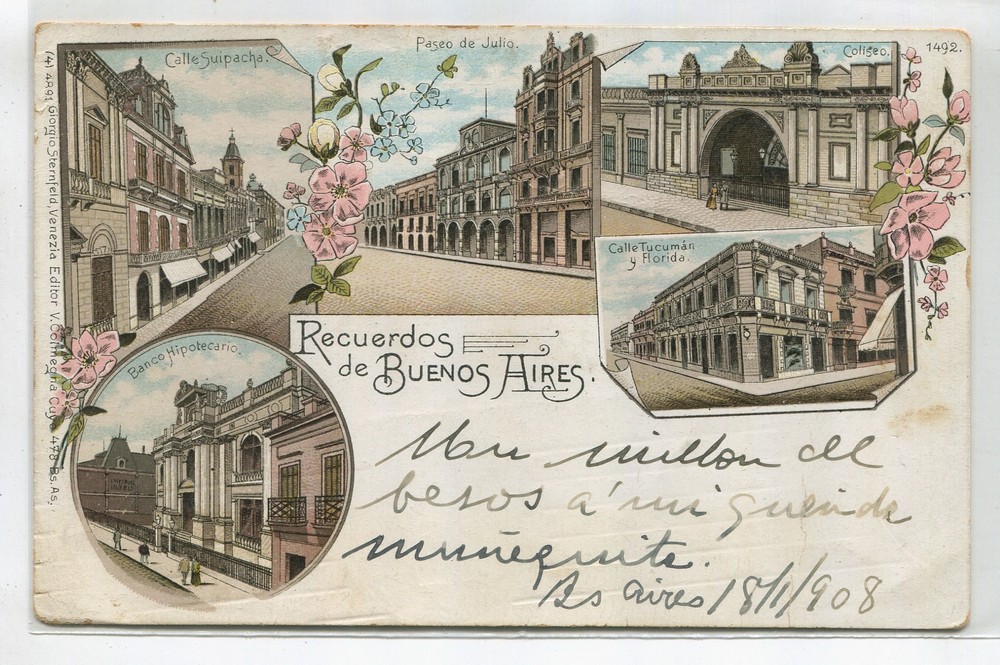 Calle Suipacha.
Paseo de Julio.
Coliseo.
1492.
Calle Tucumán
y Florida.
Banco Hipotecario.
Recuerdos
de Buenos Aires.
(4) 4891 Giorgio Sternfeld, Venezia Editor V. Colmegna, Cuyo 478 Bs. As.
Un millon de
besos á mi querida
muñequita.
Bs aires 18/1/908